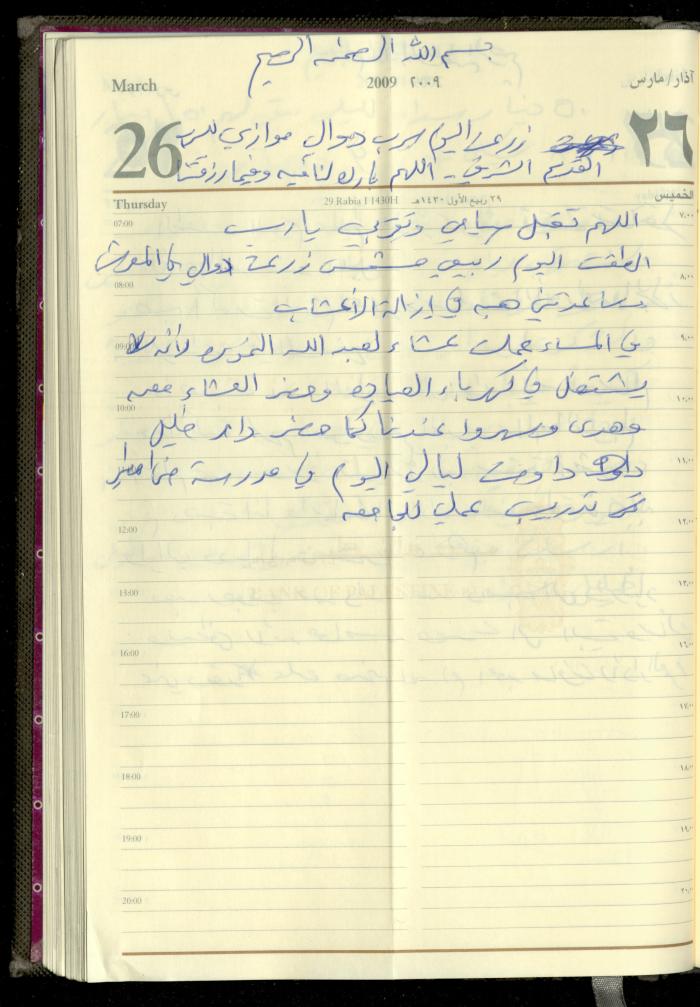 بسم الله الرحمن الرحيم
March 2009 ٢٠٠٩ آذار/مارس
26 زرعت اليوم سرب دوالي موازي للسرب ٢٦
القديم الشرقي - اللهم بارك لنا فيه وفيما رزقتنا
Thursday 29 Rabia I 1430H ٢٩ ربيع الأول ١٤٣٠هـ الخميس
07:00 اللهم تقبل صيامي وتوبتي يارب ٧،٠٠
اليوم ربيعي مشمس زرعت دوالي في ٨،٠٠
08:00 ساعدتني هبه في إزالة الأعشاب
09:00 في المساء عملت عشاء لعبد الله لأنه ٩،٠٠
يشتغل في كهرباء العياده وحضر العشاء معه
10:00 وهدى وسهروا عندنا كما حضر رائد خليل ١٠،٠٠
داومت ليالي اليوم في مدرسة ١١،٠٠
تدريب عملي للجامعه
12:00 ١٢،٠٠
13:00 ١٣،٠٠
16:00 ١٤،٠٠
17:00 ١٧،٠٠
18:00 ١٨،٠٠
19:00 ١٩،٠٠
20:00 ٢٠،٠٠